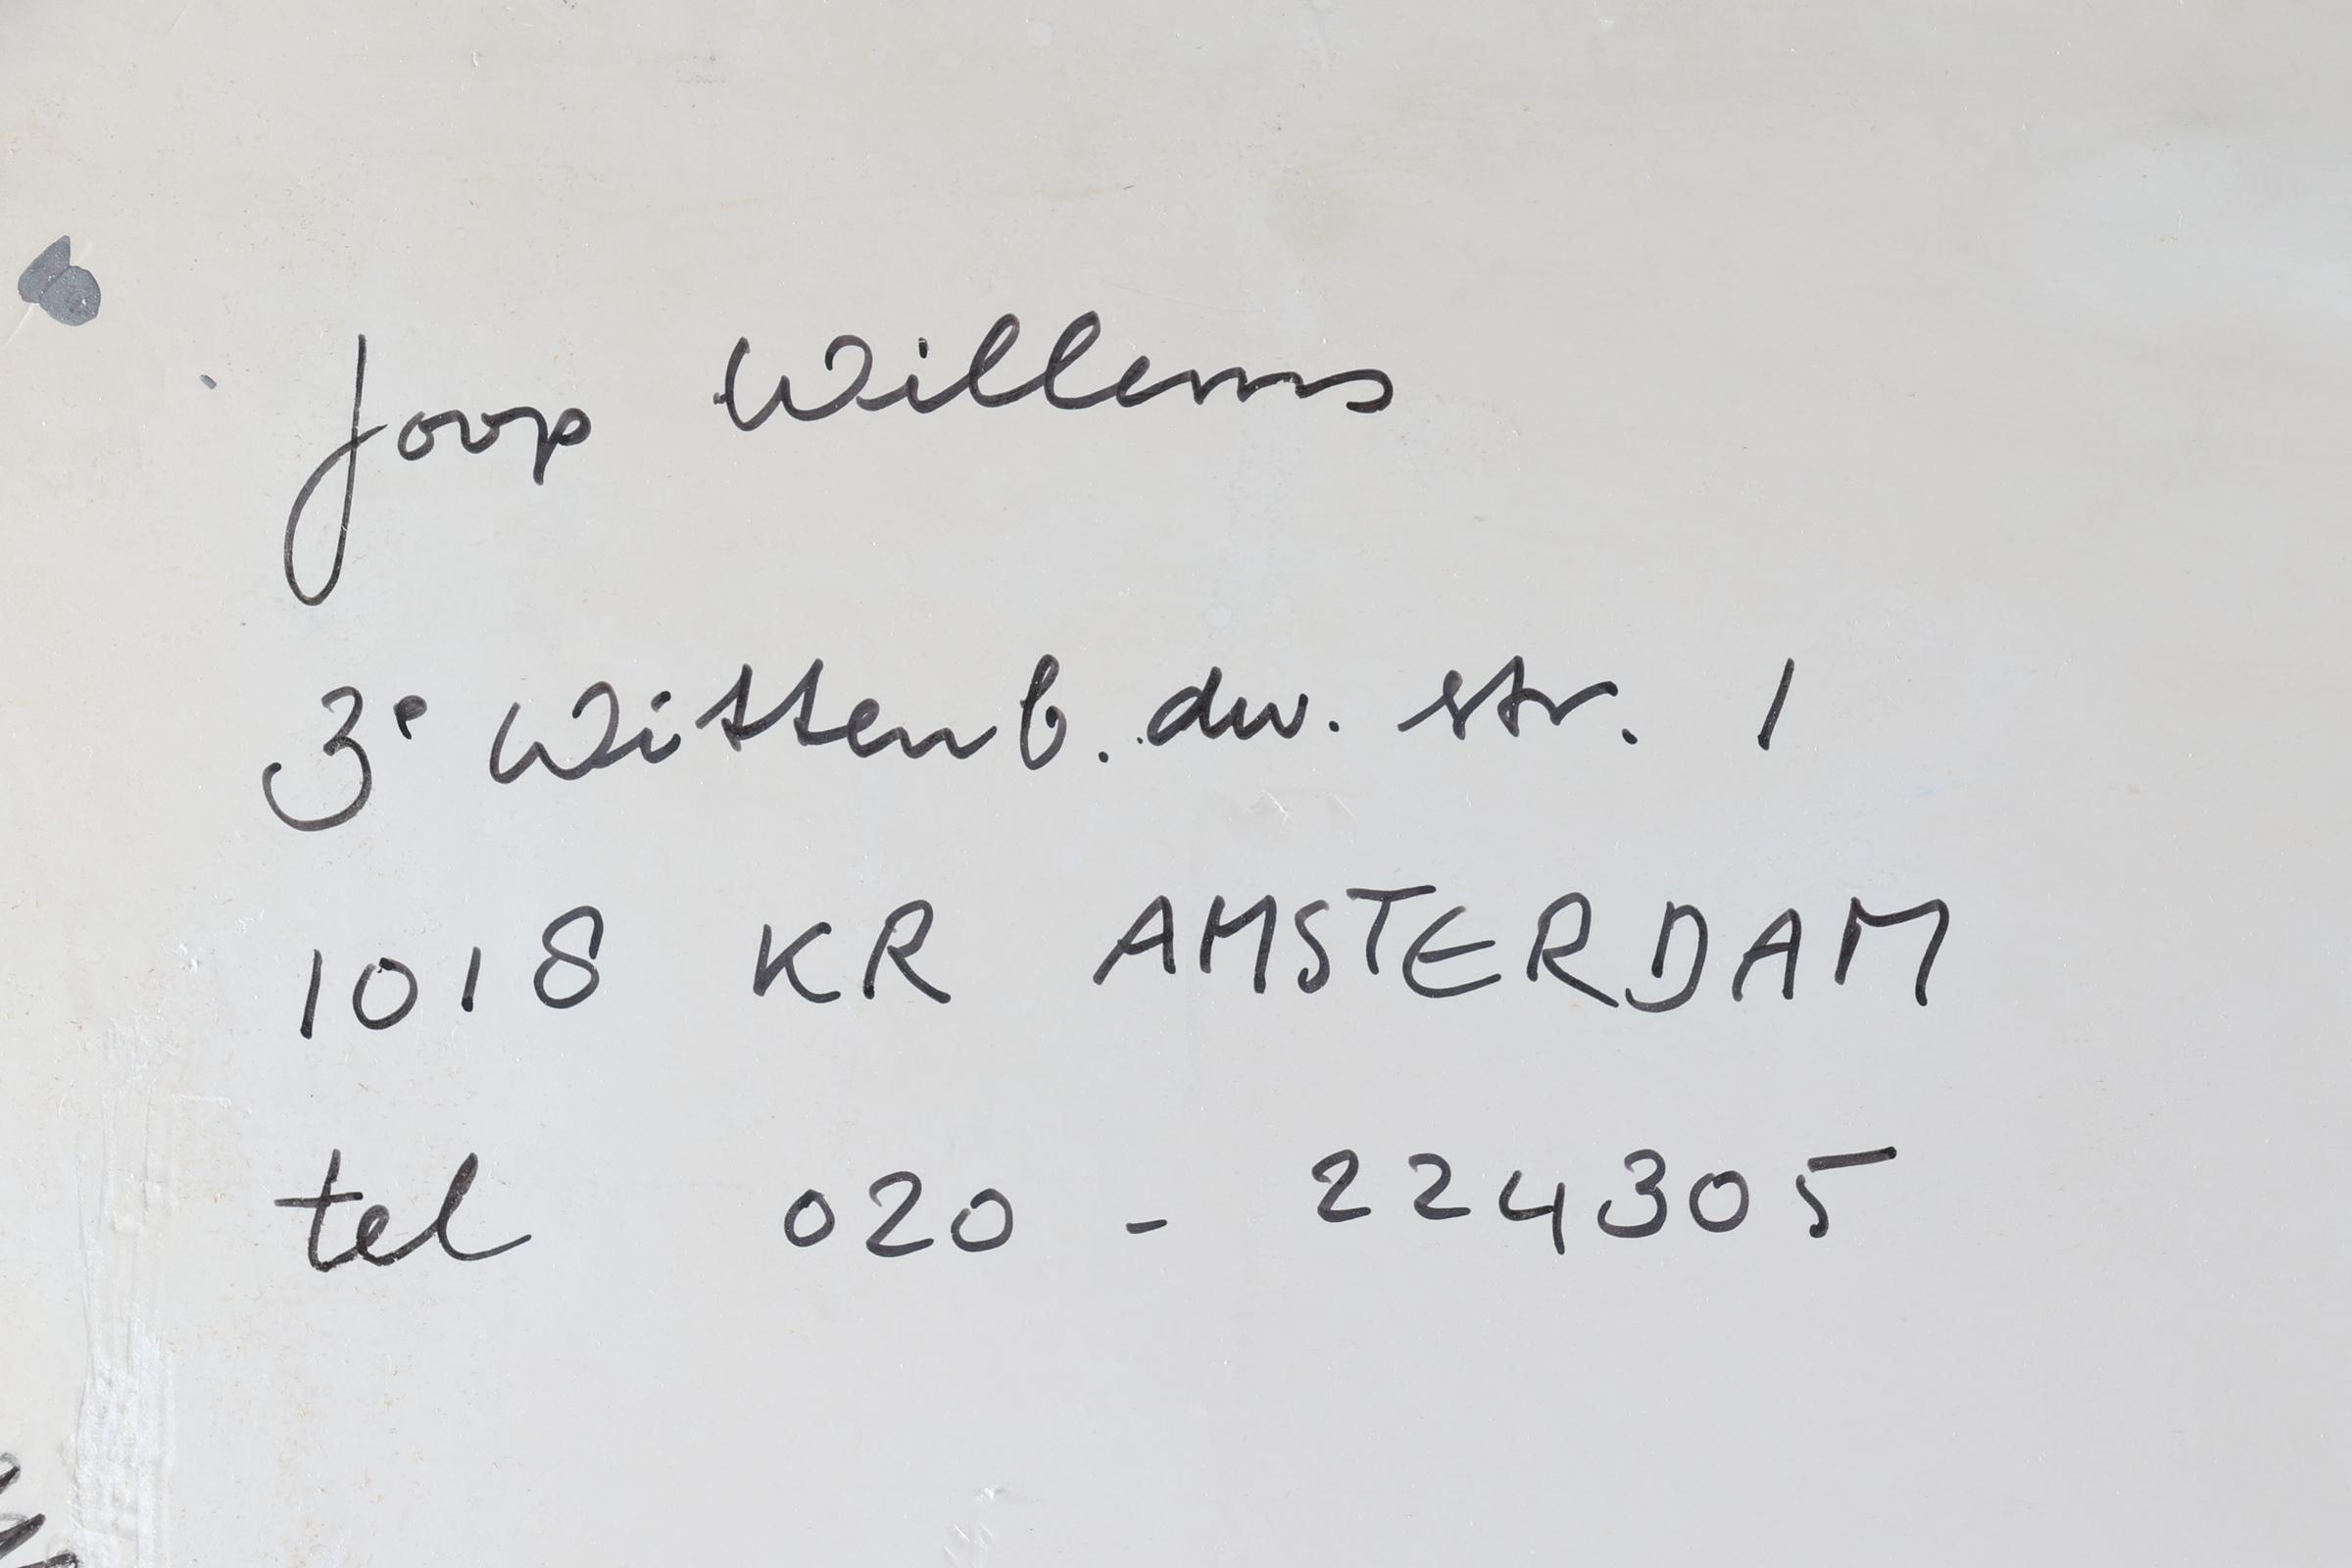 Joop Willems
3e Wittenb. dw. str. 1
1018 KR AMSTERDAM
tel 020 - 224305